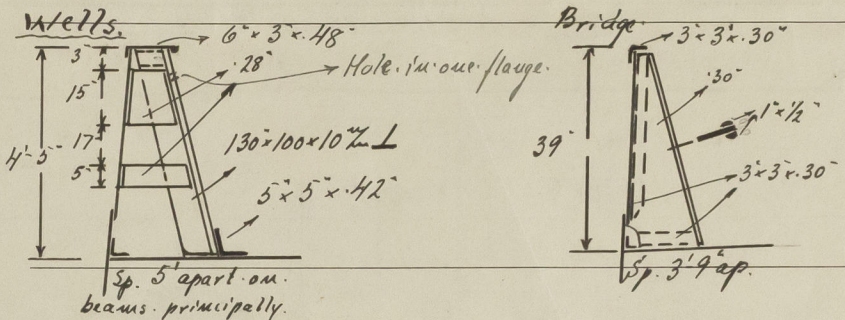 Wells.
6" x 3" x .48"
3"
.28"
Hole in one flange.
15"
17"
4'-5"
130 x 100 x 10 m/m
5"
5" x 5" x .42"
Sp. 5' apart on
beams principally.
Bridge.
3" x 3" x .30"
.30"
1" x 1/2"
39"
3" x 3" x .30"
Sp. 3' 9" ap.